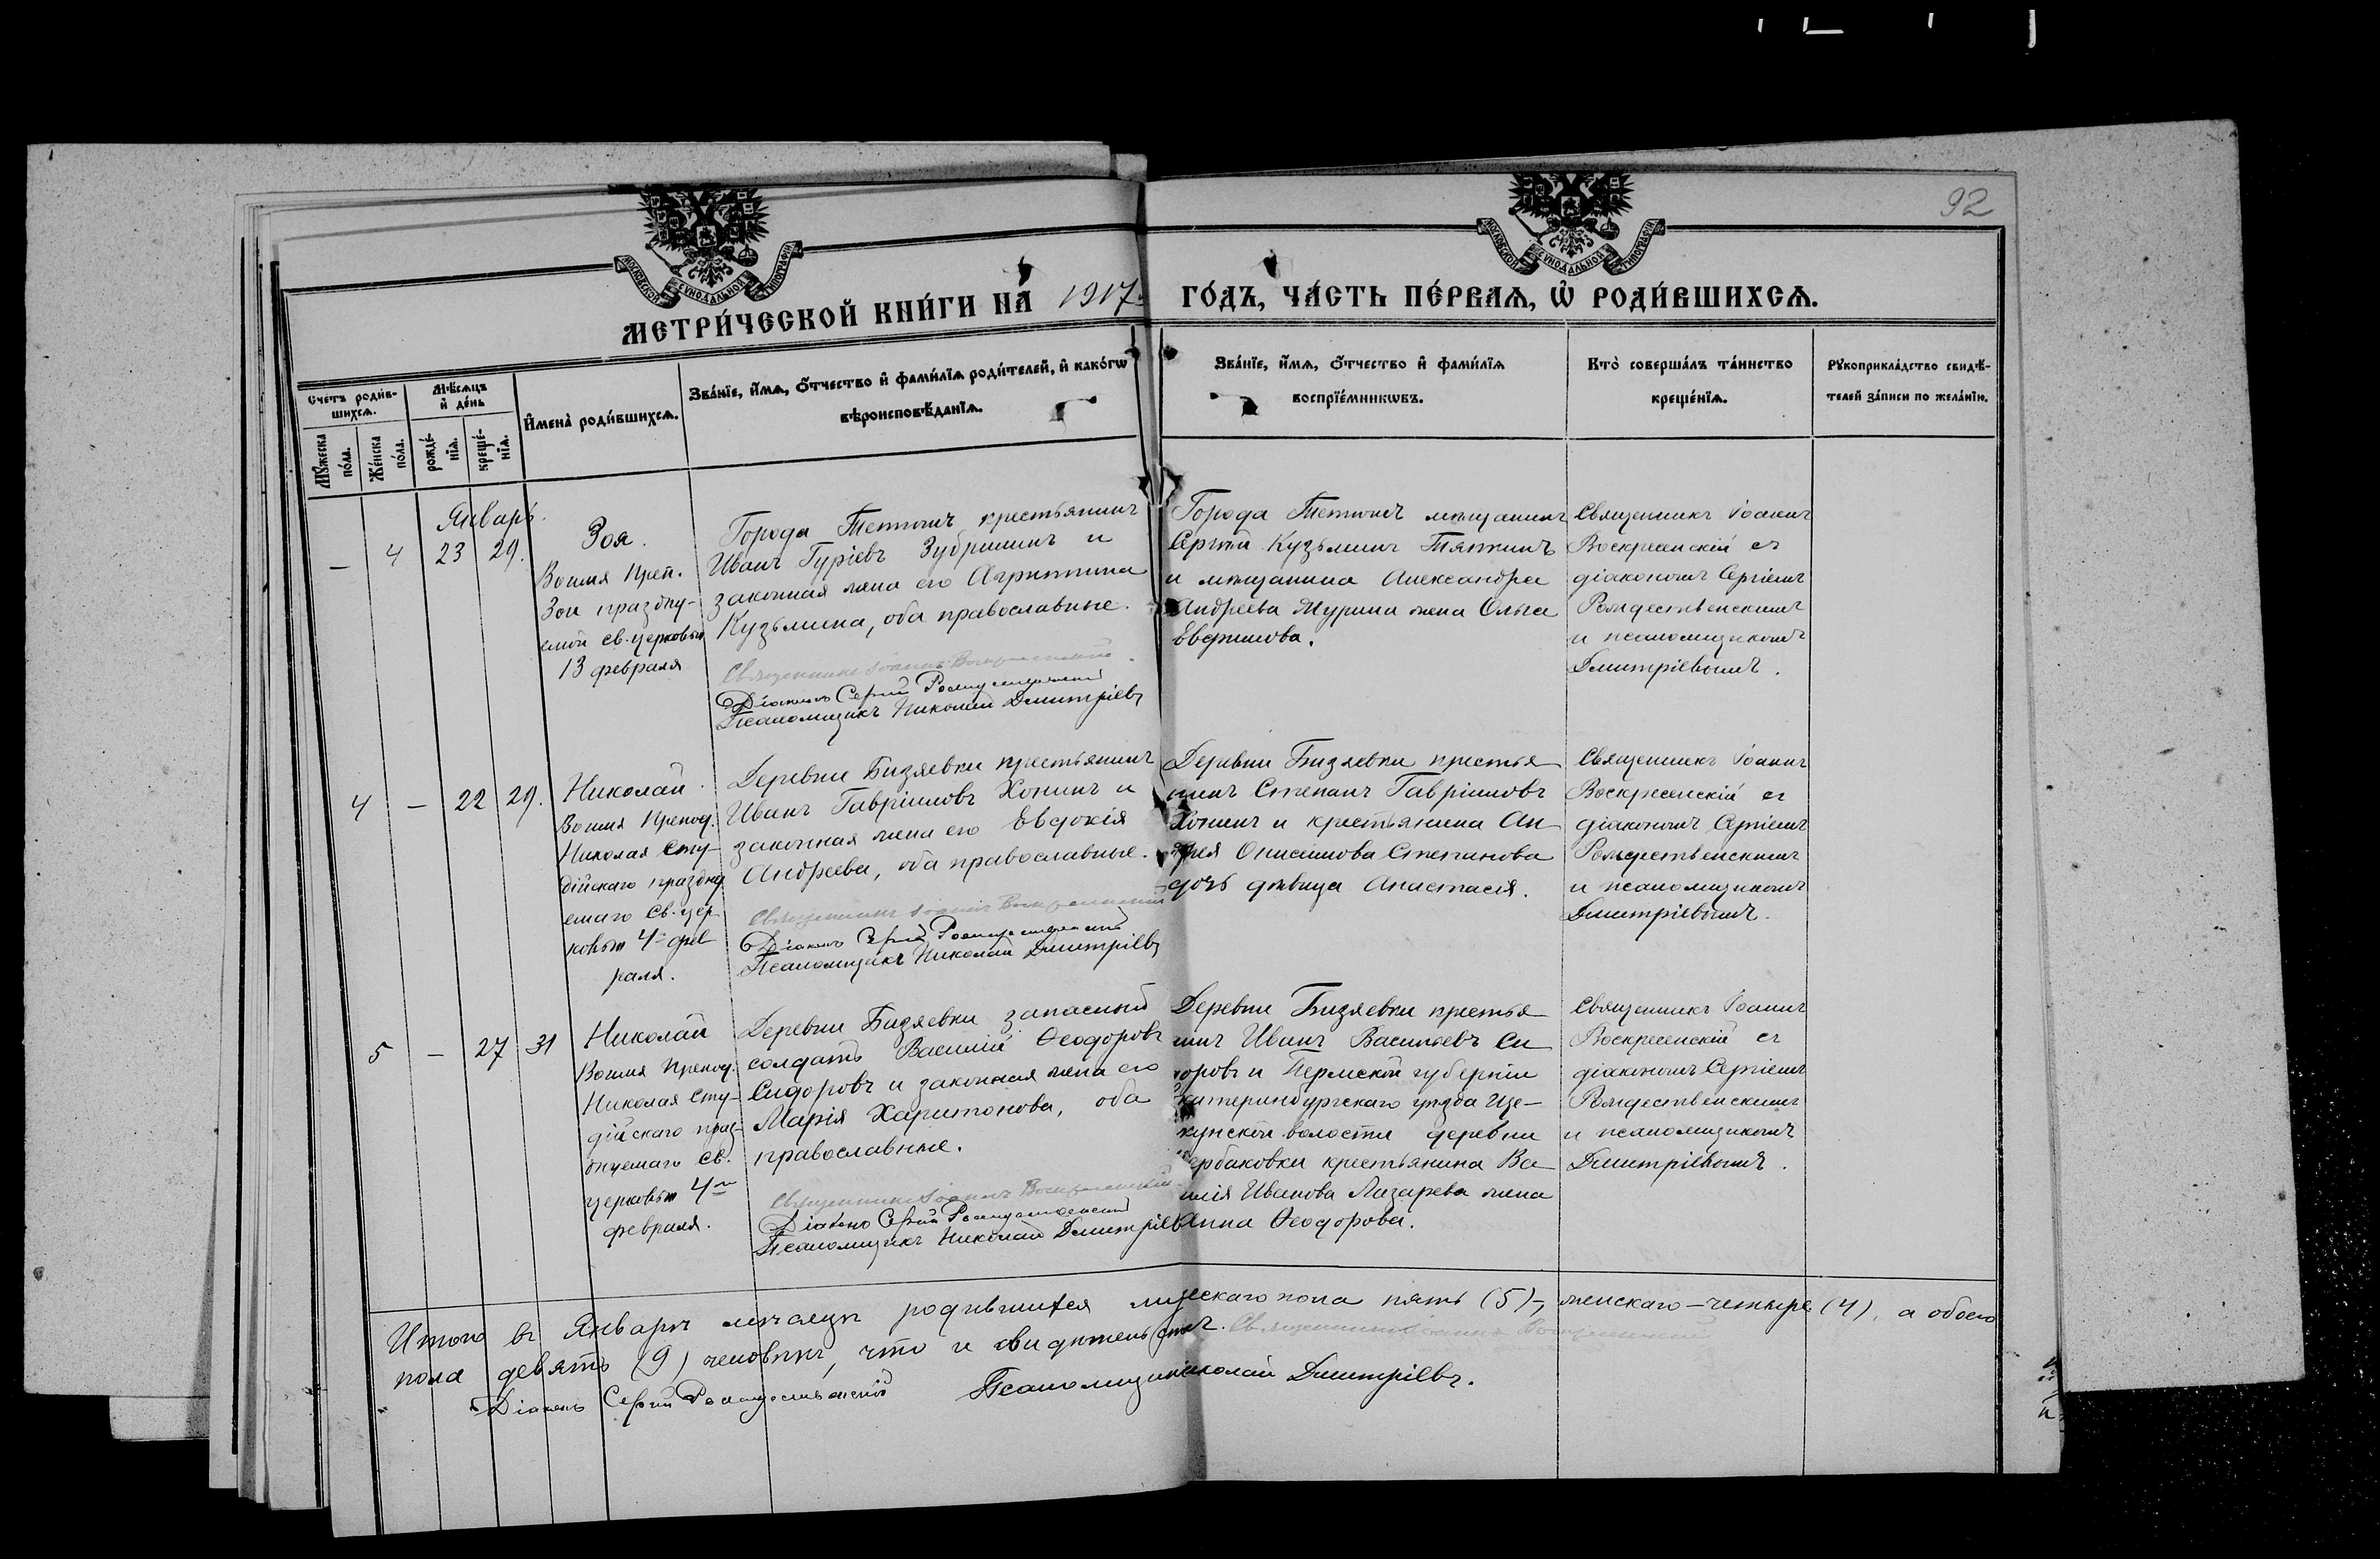 92
МОСКОВСКОЙ СѴНОДАЛЬНОЙ ТИПОГРАФІИ
МОСКОВСКОЙ СѴНОДАЛЬНОЙ ТИПОГРАФІИ
МЕТРИ́ЧЕСКОЙ КНИ́ГИ НА̀ 1917. ГО́ДЪ, ЧА́СТЬ ПЕ́РВАѦ, Ѡ҆ РОДИ́ВШИХСѦ.
Счетъ роди́в-
шихсѧ.
Мꙋ́жеска
по́ла.
Же́нска
по́ла.
Мѣ́сѧцъ
и҆ де́нь
рожде́-
нїѧ.
креще́-
нїѧ.
И҆мена̀ роди́вшихсѧ.
Зва́нїе, и҆́мѧ, ѻ҆́тчество и҆ фами́лїѧ роди́телей, и҆ како́гѡ
вѣроисповѣ́данїѧ.
Зва́нїе, и҆́мѧ, ѻ҆́тчество и҆ фами́лїѧ
воспрїе́мникѡвъ.
Кто̀ соверша́лъ та́инство
креще́нїѧ.
Рꙋкоприкла́дство свидѣ́-
телей за́писи по жела́нїю.
Январь.
— 4 23 29.
Зоя.
Во имя Преп.
Зои праздну-
емой св. церковью
13 февраля
Города Тетюшъ крестьянинъ
Иванъ Гурiевъ и
законная жена его Агриппина
Кузьмина, оба православные.
Священникъ Iоаннъ Воскресенскiй
Дiаконъ Сергiй Рождественскiй
Псаломщикъ Николай Дмитрiевъ
Города Тетюшъ мѣщанинъ
Сергѣй Кузьминъ Тяпкинъ
и мѣщанина Александра
Андреева Мурина жена Ольга
Евфимова.
Священникъ Iоаннъ
Воскресенскiй съ
дiакономъ Сергiемъ
Рождественскимъ
и псаломщикомъ
Дмитрiевымъ.
4 — 22 29.
Николай.
Во имя Препод.
Николая Сту-
дiйскаго праздну
емаго Св. цер
ковью 4го фев
раля.
Деревни Бизяевки крестьянинъ
Иванъ Гаврiиловъ Хонинъ и
законная жена его Евдокiя
Андреева, оба православные.
Священникъ Iоаннъ Воскресенскiй
Дiаконъ Сергiй Рождественскiй
Псаломщикъ Николай Дмитрiевъ
Деревни Бизяевки крестья
нинъ Степанъ Гаврiиловъ
Хонинъ и крестьянина Ан
дрея Онисимова Степанова
дочь дѣвица Анастасiя.
Священникъ Iоаннъ
Воскресенскiй съ
дiакономъ Сергiемъ
Рождественскимъ
и псаломщикомъ
Дмитрiевымъ.
5 — 27 31
Николай
Во имя Препод.
Николая Сту-
дiйскаго празд-
нуемаго св.
церковью 4го
февраля.
Деревни Бизяевки запасный
солдатъ Василiй Ѳеодоровъ
Сидоровъ и законная жена его
Марiя Харитонова, оба
православные.
Священникъ Iоаннъ Воскресенскiй
Дiаконъ Сергiй Рождественскiй
Псаломщикъ Николай Дмитрiевъ
Деревни Бизяевки крестья
нинъ Иванъ Васильевъ Си
доровъ и Пермской губернiи
Екатеринбургскаго уѣзда Ще-
кунской волости деревни
крестьянина Ва
силiя Иванова Лазарева жена
Анна Ѳеодорова.
Священникъ Iоаннъ
Воскресенскiй съ
дiакономъ Сергiемъ
Рождественскимъ
и псаломщикомъ
Дмитрiевымъ.
Итого въ Январѣ мѣсяцѣ родившихся мужескаго пола пять (5), женскаго — четыре (4), а обоего
пола девять (9) человѣкъ, что и свидѣтельствуемъ. Священникъ Iоаннъ Воскресенскiй
Дiаконъ Сергiй Рождественскiй Псаломщикъ Николай Дмитрiевъ.